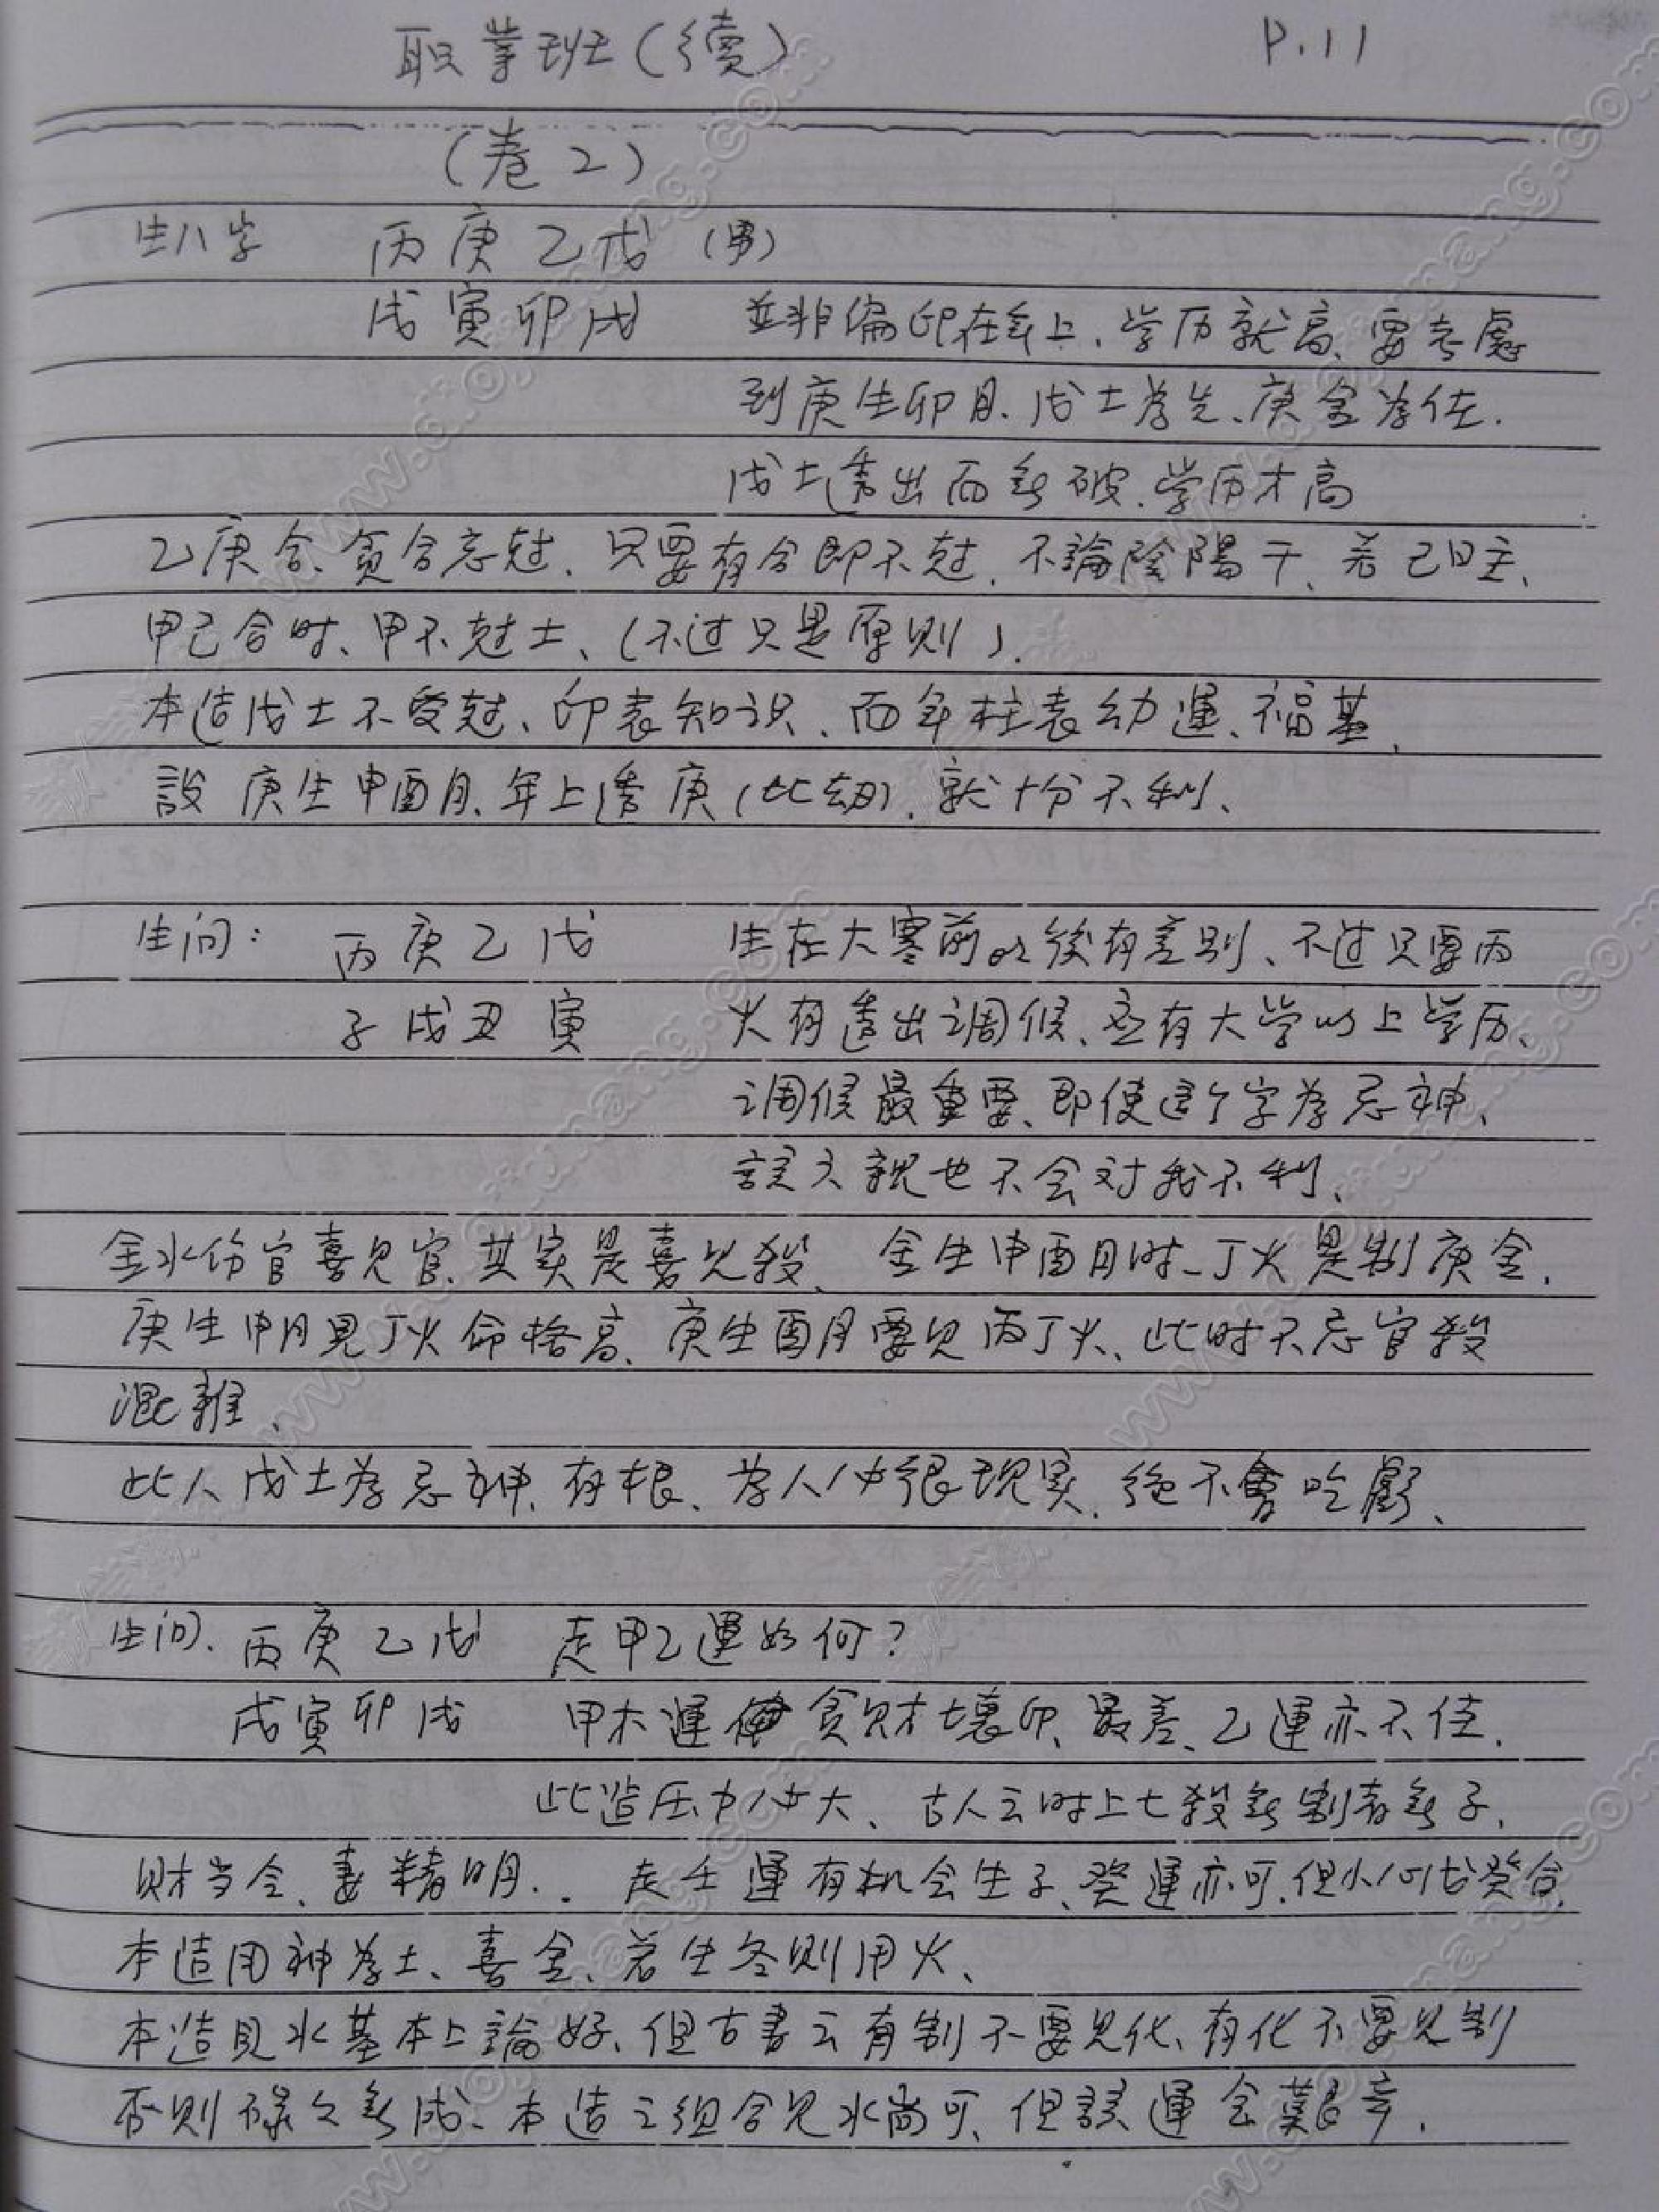 职業班(續) P.11
(卷2)
生八字 丙庚乙戊 (男)
戊寅卯戌 並非偏印在年上、学历就高、要考慮
到庚生卯月、戊土為先、庚金為佐.
戊土透出而無破、学历才高
乙庚合、貪合忘尅、只要有合即不尅、不論陰陽干、若己日主、
甲己合时、甲不尅土、(不过只是原则).
本造戊土不受尅、印表知识、而年柱表幼運、福基、
設庚生申酉月、年上透庚(比劫)、就十分不利、
生问: 丙庚乙戊 生在大寒前以後有差别、不过只要丙
子戌丑寅 火有透出调候、应有大学以上学历、
调候最重要、即使這个字為忌神、
該六親也不会对我不利、
金水伤官喜见官、其实是喜见殺、金生申酉月时、丁火是制庚金、
庚生申月見丁火命格高、庚生酉月要见丙丁火、此时不忌官殺
混雜、
此人戊土為忌神、有根、為人必很现实、绝不會吃虧、
生问、丙庚乙戊 走甲乙運如何?
戌寅卯戌 甲木運 貪财壞印、最差、乙運亦不佳.
此造压力必大、古人云时上七殺無制者無子、
财当令、妻精明.. 走壬運有机会生子、癸運亦可、但小心戊癸合.
本造用神為土、喜金、若生冬则用火、
本造見水基本上論好、但古書云有制不要见化、有化不要见制
否则禄久無成、本造之组合见水尚可、但該運会艱辛.
www.dajimang.com